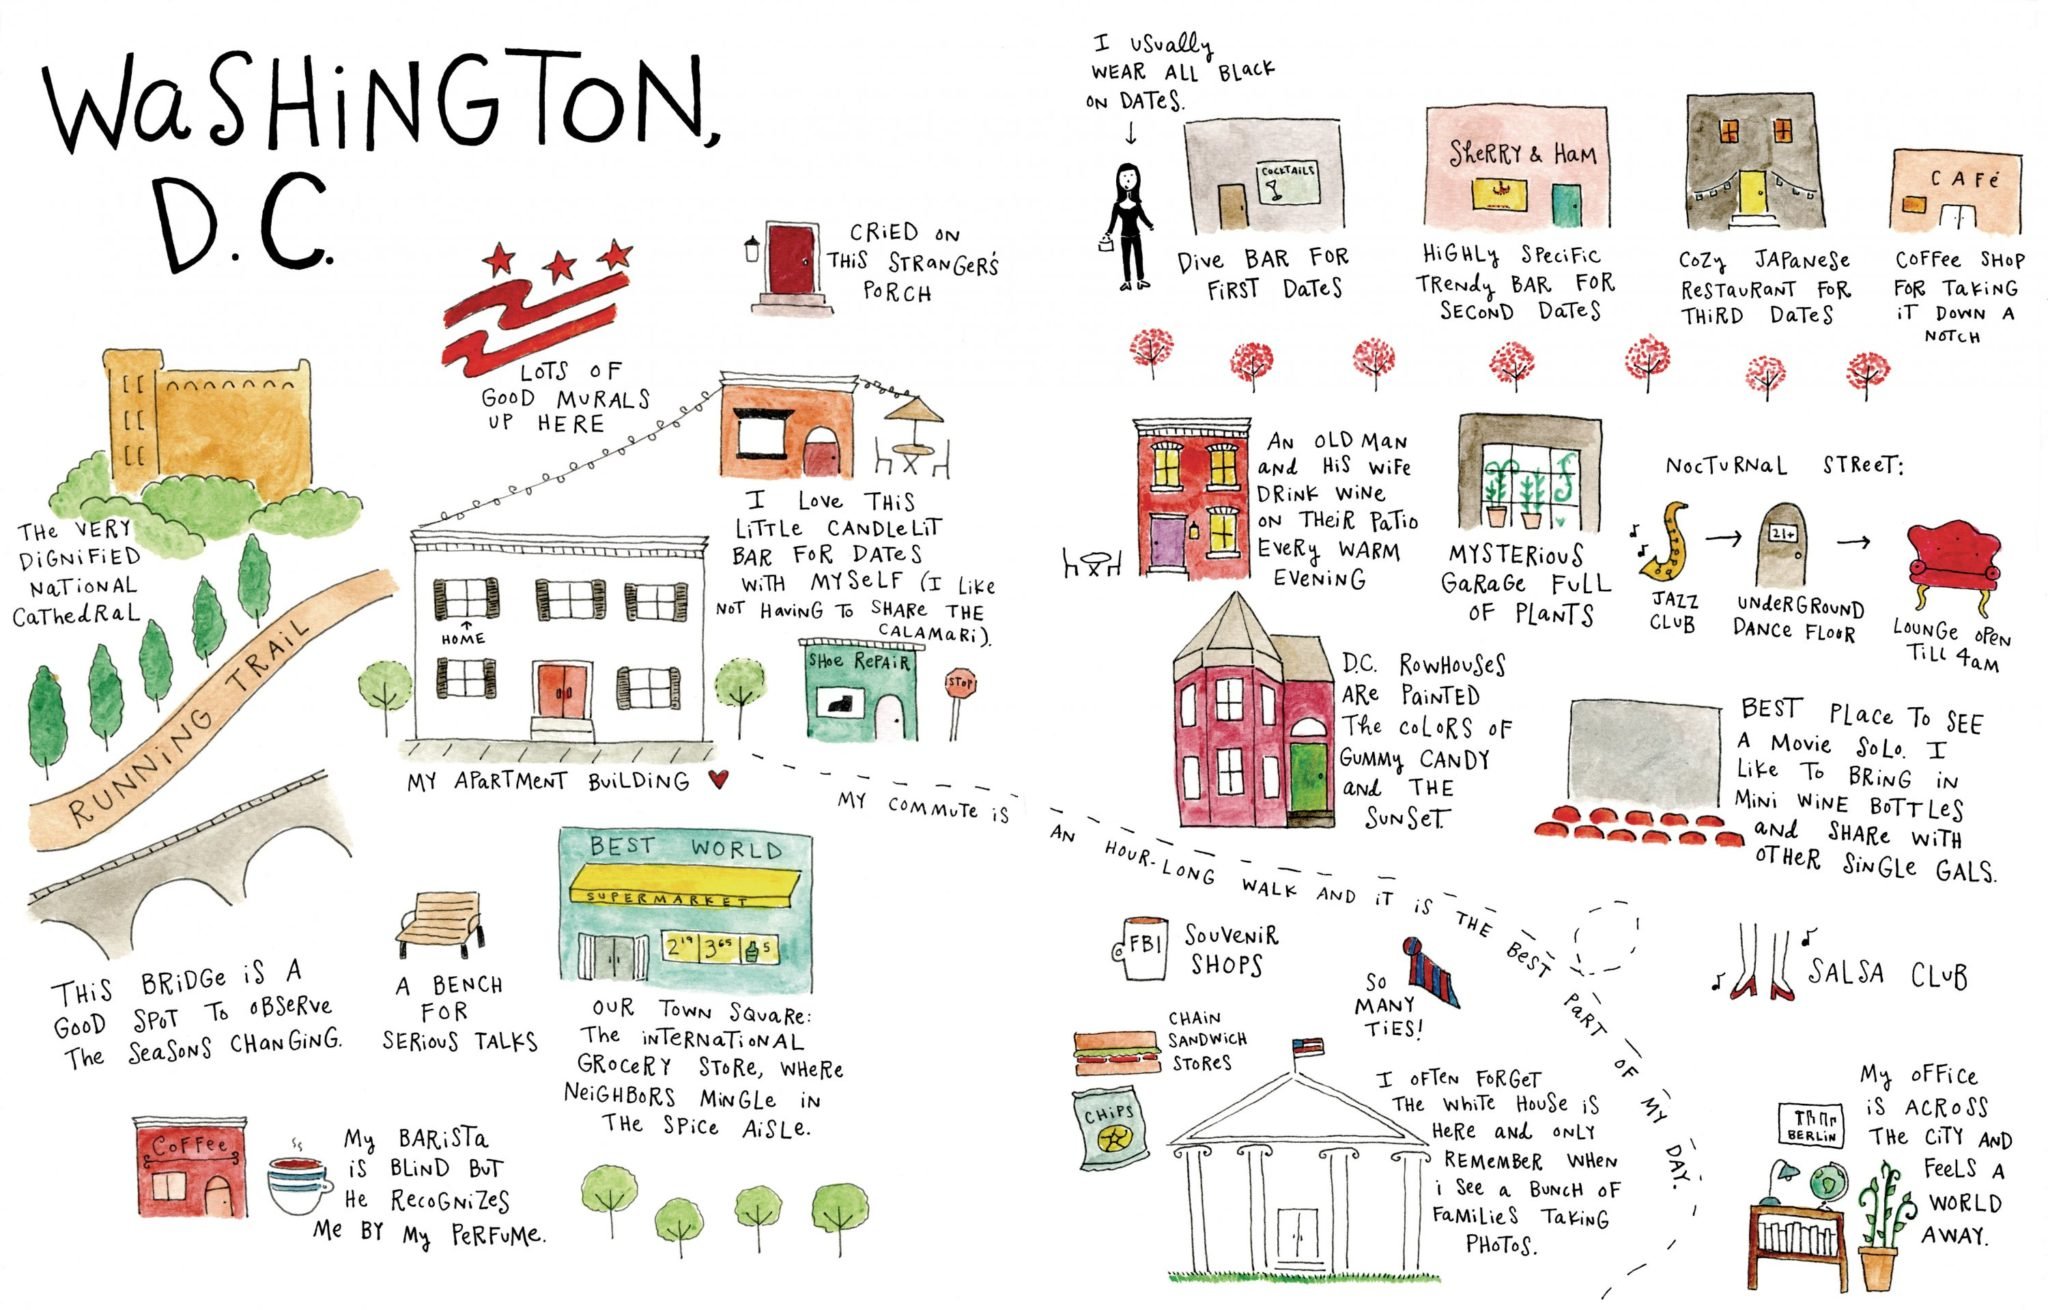 WaSHiNGTON,
D.C.
CRiED ON
THiS STRaNGeR'S
PORCH
LOTS OF
GOOD MURALS
UP HERE
THE VERY
DiGNiFiED
NaTiONAL
CaTHedRAL
RUNNiNG TRAiL
HOME
MY APaRTMENT BUiLDiNG
I LOVE THiS
LiTTLE CANDLELIT
BAR FOR DATES
WiTH MYSELF (I LiKE
NOT HAViNG TO SHARE THE
CALAMARi).
SHOE REPAiR
STOP
THiS BRiDGe iS A
GOOD SPOT TO OBSeRVe
THE SeaSONS CHANGiNG.
A BENCH
FOR
SERiOUS TALKS
BEST WORLD
SUPERMARKET
2¹⁹ 3⁶⁵ 5
OUR TOWN SQUARE:
THE iNTERNaTiONAL
GROCeRY STORE, WHeRe
NeiGHBORS MiNGLe iN
THE SPiCe AiSLe.
COFFee
My BARiSTa
iS BLiND BUT
HE RECOGNiZES
ME BY My PeRFUMe.
I usually
WEAR ALL BLacK
ON DATeS.
COCKTAiLS
DiVe BAR FOR
FiRST DATES
SHeRRY & HaM
HiGHLy SPeCiFiC
TReNDy BAR FOR
SECOND DATES
COZy JAPaNeSe
ReSTaURaNT FOR
THiRD DATES
CAFé
COFFee SHOP
FOR TaKiNG
iT DOWN A
NOTCH
AN OLD MAN
aND HiS WiFe
DRiNK WiNE
ON THEiR PaTiO
EVeRy WARM
EVENiNG
MYSTERiOUS
GaRaGe FULL
OF PLANTS
NOCTURNaL STReeT:
JAZZ
CLUB
21+
UNDeRGROUND
DANCe FLOOR
LOUNGe OPEN
TiLL 4aM
D.C. ROWHOUSeS
ARe PaiNTED
THe COLORS OF
GUMMy CANDY
aND THE
SUNSeT.
BEST PLaCe TO SEE
A MOViE SOLO. I
LiKe TO BRiNG iN
MiNi WiNE BOTTLES
aND SHARe WiTH
OTHeR SiNGLe GALS.
MY COMMUTe iS AN HOUR-LONG WALK AND iT iS THE BeST PaRT OF MY DAY.
FBI
SOUVeNiR
SHOPS
SO
MANY
TiES!
SALSA CLUB
CHAiN
SANDWiCH
STOReS
CHiPS
I OFTEN FORGeT
THE WHiTE HOUSE iS
HeRe AND ONLY
REMEMBER WHEN
i See A BUNCH OF
FaMiLiES TAKiNG
PHOTOS.
My OFFiCe
iS ACROSS
THe CiTY AND
FeeLS A
WORLD
AWAY.
BERLiN